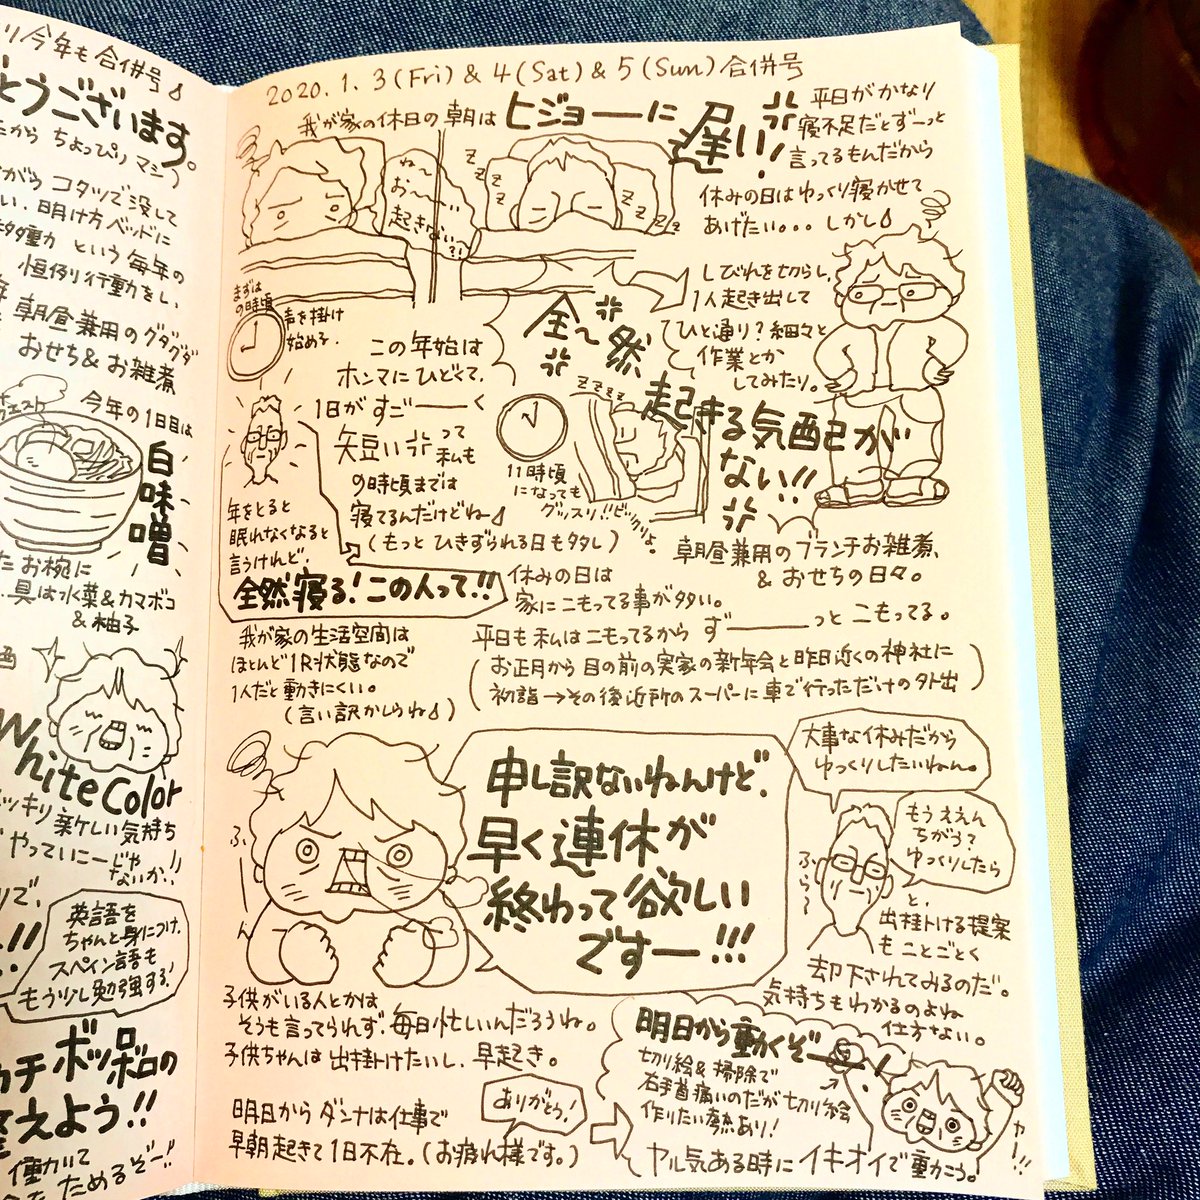 今年も合併号
とうございます。
たから ちょっぴり マシ)
がら コタツで 没して
い、明け方ベッドに
移動 という毎年の
恒例行動をし、
朝昼兼用のグダグダ
おせち& お雑煮
今年の1日目は
白味噌
たお椀に
具は水菜&カマボコ
&柚子
White Color
新しい気持ち
やっていこーじゃ
ないか!!
英語を
ちゃんと身につけ、
スペイン語も
もう少し勉強する!
ボッボロの
えよう!!
働いて
ためるぞー!!
2020.1.3(Fri)&4(Sat)&5(Sun)合併号
我が家の休日の朝は ヒジョーーに 遅い!
平日がかなり
寝不足だとずーっと
言ってるもんだから
休みの日はゆっくり寝かせて
あげたい。。。しかし
ね〜
お〜〜い
起きない〜?!
zzzz
zzzz
しびれを切らし、
1人起き出して
ひと通り?細々と
作業とか
してみたり。
まずは
9時頃
声を掛け
始める
この年始は
ホンマにひどくて、
1日がすごーーく
短いって
私も
9時頃までは
寝てるんだけどね
(もっと ひきずられる日も多し)
全〜然
起きる気配が
ない!!
zzzzz
11時頃
になっても
グッスリ!!ビックリよ。
年をとると
眠れなくなると
言うけれど、
全然寝る!この人って!!
朝昼兼用のブランチお雑煮、
& おせちの日々。
休みの日は
家にこもってる事が多い。
平日も私はこもってるから ずーーーっと こもってる。
(お正月から目の前の実家の新年会と昨日近くの神社に
初詣→その後近所のスーパーに車で行っただけの外出)
我が家の生活空間は
ほとんど1R状態なので
1人だと動きにくい。
(言い訳かしらね)
申し訳ないねんけど、
早く連休が
終わって欲しい
ですー!!!
ふーん
大事な休みだから
ゆっくりしたいねん。
もうええん
ちがう?
ゆっくりしたら
ふら〜
と、
出掛ける提案
もことごとく
却下されてみるのだ。
気持ちもわかるのよね
仕方ない。
子供がいる人とかは
そうも言ってられず、毎日忙しいんだろうね。
子供ちゃんは出掛けたいし、早起き。
明日からダンナは仕事で
早朝起きて1日不在。(お疲れ様です。)
ありがとう!
明日から動くぞー!
切り絵&掃除で
右手首痛いのだが切り絵
作りたい熱あり!
ヤル気ある時にイキオイで動こう。
ヤー!!